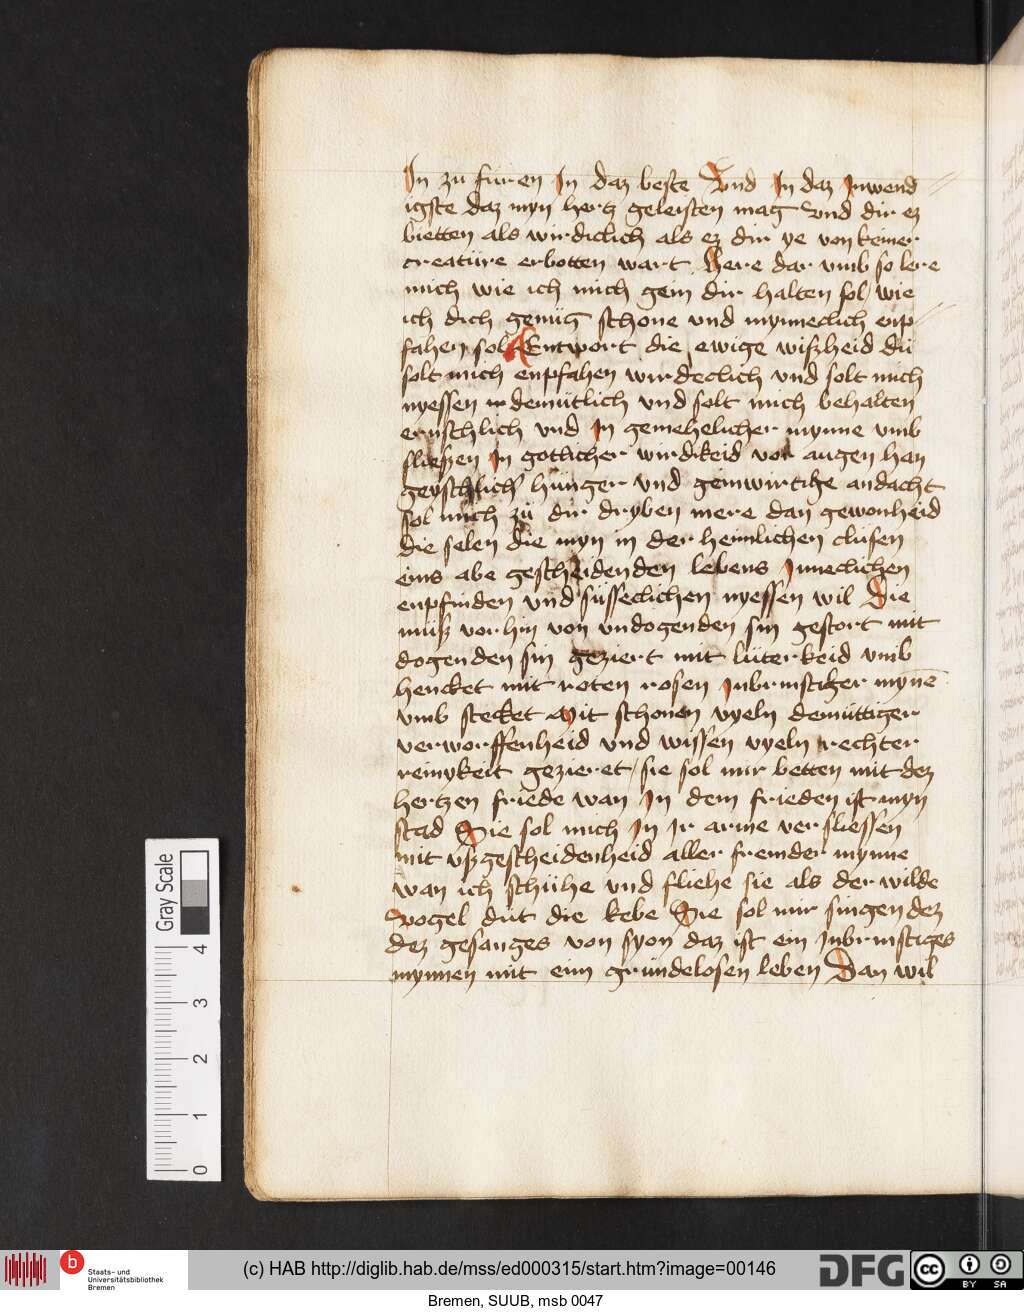 In zu füren In daz beste Vnd In daz Inwend
igste daz myn hertz geleisten mag Vnd dir ez
bietten als wirdiclich als ez dir ye von keiner
creatüre erbotten wart Here dar vmb so lere
mich wie ich mich gein dir halten sol wie
ich dich genüg schone vnd mynneclich enp
fahen sol Entwort die ewige wißheid dü
solt mich enpfahen wirdeclich vnd solt mich
nyessen demütlich vnd solt mich behalten
ernschlich vnd In gemehelicher mynne vmb
sließen In gotlicher wirdikeid vor augen han
geyschlich hünger vnd geinwirtige andacht
sol mich zü dir dryben mere dan gewonheid
die selen die myn in der heimlichen clusen
eins abe gescheidenden lebens Inneclichen
enpfinden vnd süsseclichen nyessen wil Die
müß vorhin von vndogenden sin gestort mit
dogenden sin geziert mit lüterkeid vmb
hencket mit roten rosen Inbrinstiger myne
vmb stecket Mit schonen vyeln demüttiger
verworffenheid vnd wissen vyeln rechter
reinykeit gezieret / sie sol mir betten mit dez
hertzen friede wan In dem frieden ist myn
stad Sie sol mich In Ir arme versliessen
mit vßgescheidenheid aller fremder mynne
wan ich schühe vnd fliehe sie als der wilde
Vogel düt die kebe Sie sol mir singen dez
dez gesanges von syon daz ist ein Inbrinstiges
mynnen mit eim gründelosen leben Dan wil
Gray Scale
0 1 2 3 4
b
Staats- und
Universitätsbibliothek
Bremen
(c) HAB http://diglib.hab.de/mss/ed000315/start.htm?image=00146
DFG
cc BY SA
Bremen, SUUB, msb 0047